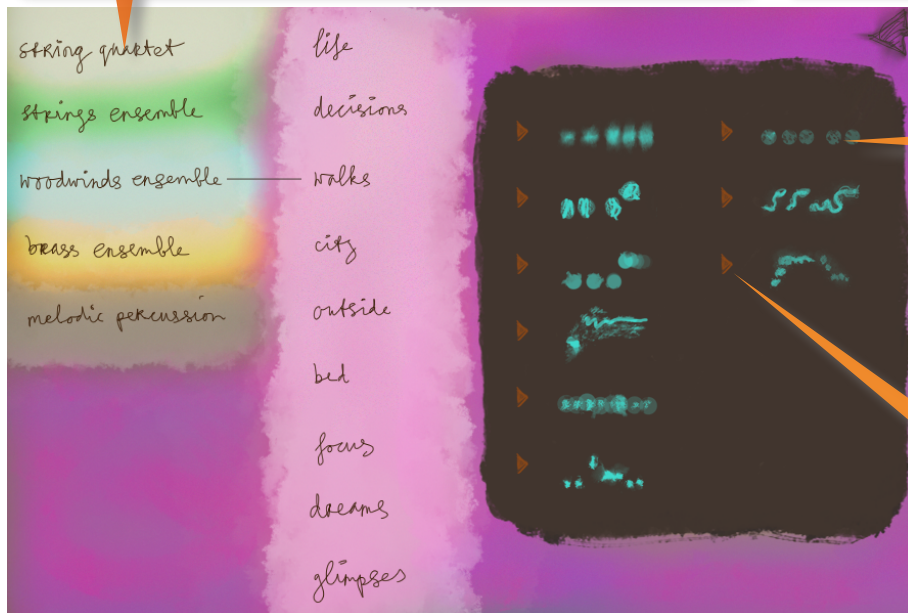 string quartet
strings ensemble
woodwinds ensemble
brass ensemble
melodic percussion
life
decisions
walks
city
outside
bed
focus
dreams
glimpses